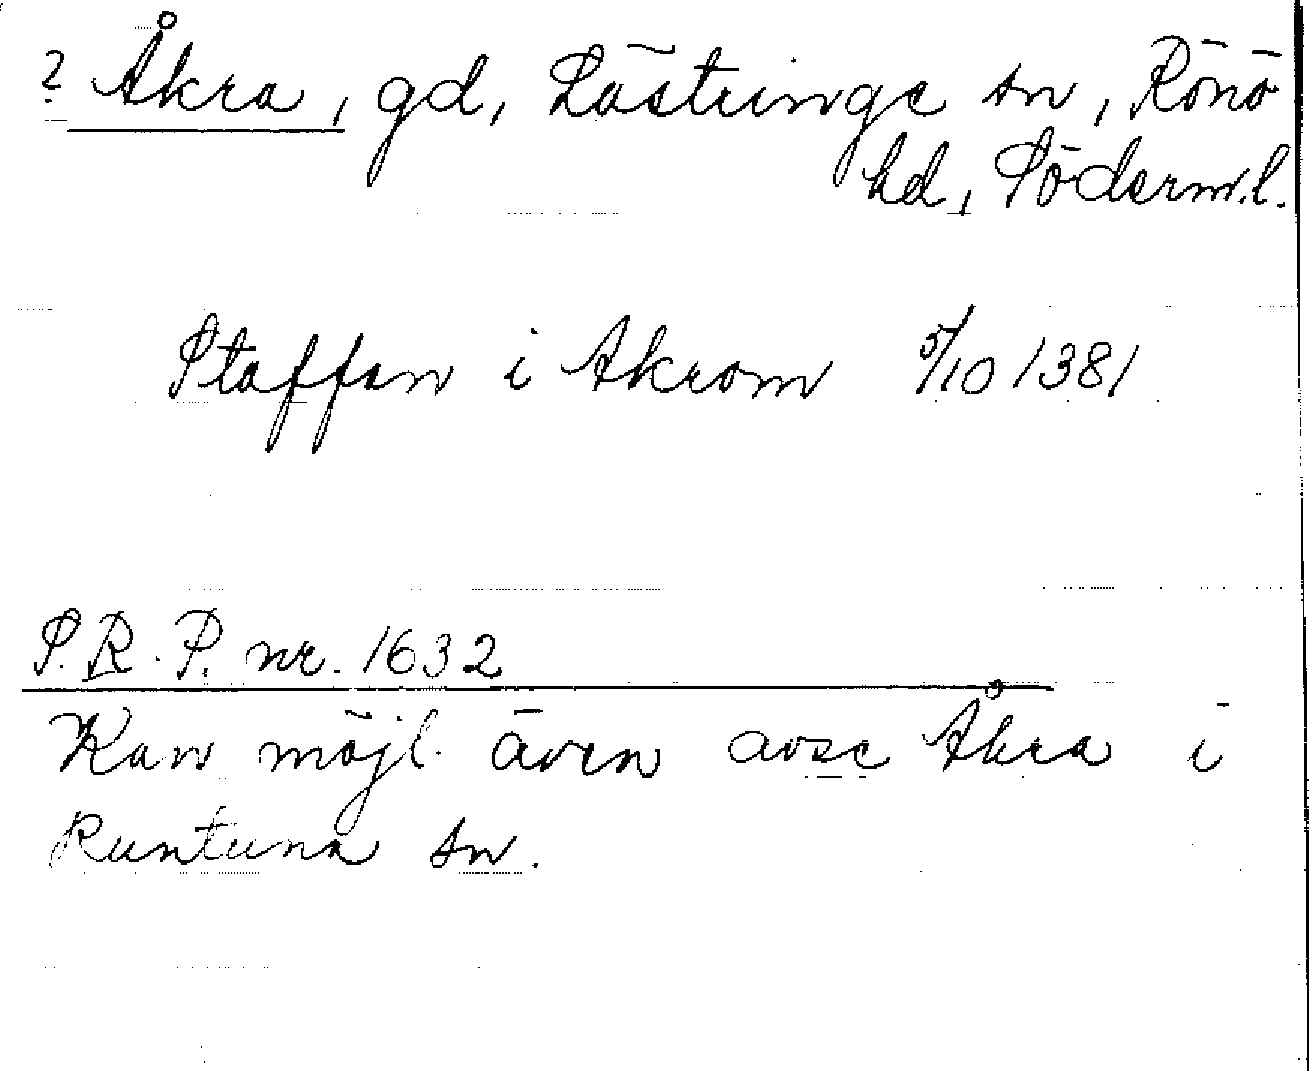 ? Åkra, gd, Lästringe sn, Rönö
hd, Söderm.l.
Staffan i Akrom 5/10 1381
S.R.P. nr. 1632
Kan möjl. även avse Åkra i
Runtuna sn.